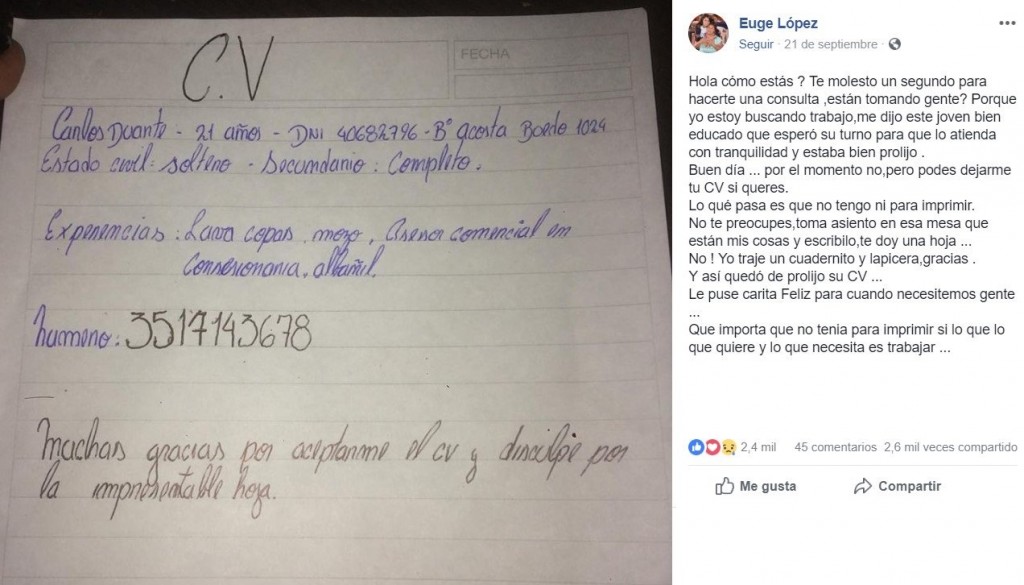 C.V
FECHA
Carlos Duarte - 21 años - DNI 40682796 - B° acosta Boedo 1024
Estado civil: soltero - Secundario: Completo.
Experiencias: Lava copas, mozo, Asesor comercial en
Consesionaria, albañil.
numero: 3517143678
Muchas gracias por aceptarme el cv y disculpe por
la impresentable hoja.
Euge López
Seguir · 21 de septiembre ·
Hola cómo estás ? Te molesto un segundo para
hacerte una consulta ,están tomando gente? Porque
yo estoy buscando trabajo,me dijo este joven bien
educado que esperó su turno para que lo atienda
con tranquilidad y estaba bien prolijo .
Buen día ... por el momento no,pero podes dejarme
tu CV si queres.
Lo qué pasa es que no tengo ni para imprimir.
No te preocupes,toma asiento en esa mesa que
están mis cosas y escribilo,te doy una hoja ...
No ! Yo traje un cuadernito y lapicera,gracias .
Y así quedó de prolijo su CV ...
Le puse carita Feliz para cuando necesitemos gente
...
Que importa que no tenia para imprimir si lo que lo
que quiere y lo que necesita es trabajar ...
2,4 mil 45 comentarios 2,6 mil veces compartido
Me gusta Compartir